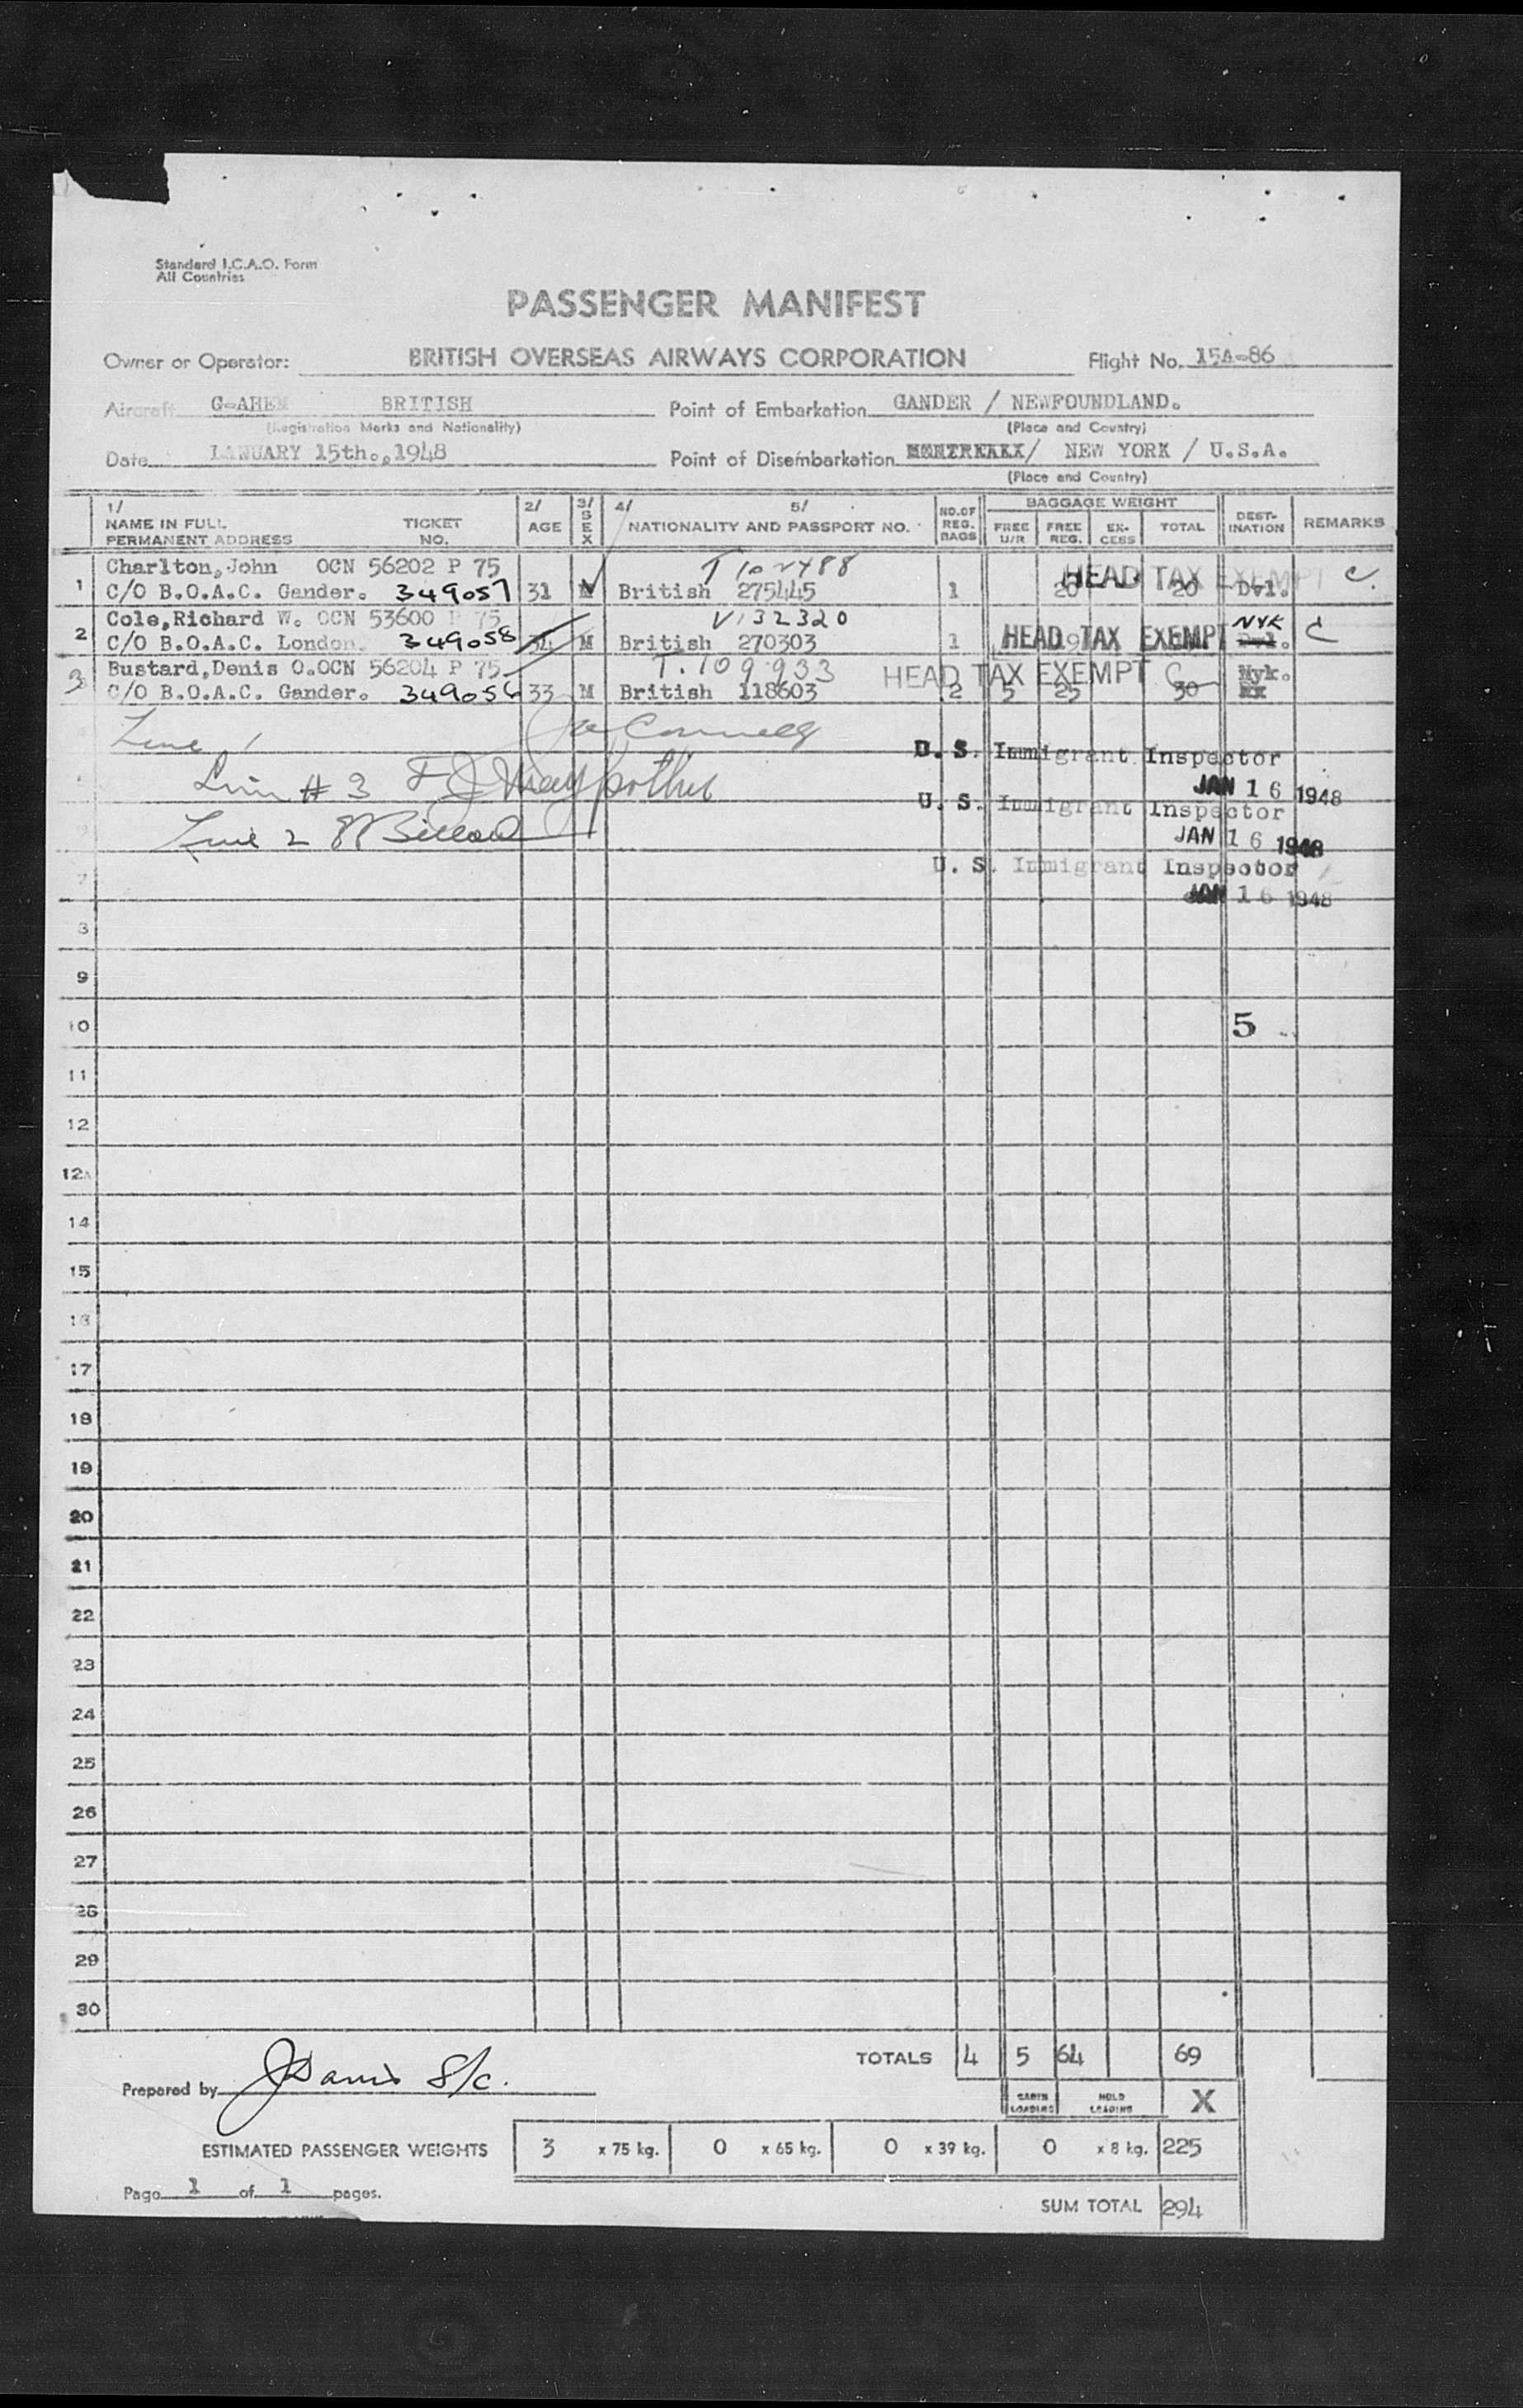 Standard I.C.A.O. Form
All Countries
PASSENGER MANIFEST
Owner or Operator: BRITISH OVERSEAS AIRWAYS CORPORATION Flight No. 15A-86
Aircraft G-AHEM BRITISH Point of Embarkation GANDER / NEWFOUNDLAND.
(Registration Marks and Nationality) (Place and Country)
Date JANUARY 15th.,1948 Point of Disembarkation / NEW YORK / U.S.A.
(Place and Country)
1/ 2/ 3/ 4/ 5/ NO.OF REG. BAGS BAGGAGE WEIGHT DEST- INATION REMARKS
NAME IN FULL TICKET AGE SEX NATIONALITY AND PASSPORT NO. FREE U/R FREE REG. EX- CESS TOTAL
PERMANENT ADDRESS NO.
Charlton,John OCN 56202 P 75 T 102488 HEAD TAX EXEMPT C
1 C/O B.O.A.C. Gander. 349057 31 M British 275445 1 20 20 Dvl.
Cole,Richard W. OCN 53600 P 75 V132320 NYK
2 C/O B.O.A.C. London. 349058 34 M British 270303 1 HEAD TAX EXEMPT Dvl. C
Bustard,Denis O.OCN 56204 P 75 T.109933 HEAD TAX EXEMPT C Nyk.
3 C/O B.O.A.C. Gander. 349056 33 M British 118603 2 5 25 30
Line 1
U. S. Immigrant Inspector
JAN 16 1948
Line # 3
U. S. Immigrant Inspector
JAN 16 1948
Line 2
U. S. Immigrant Inspector
7 JAN 16 1948
8
9
10 5
11
12
12A
14
15
16
17
18
19
20
21
22
23
24
25
26
27
28
29
30
TOTALS 4 5 64 69
Prepared by JDavis S/c. CABIN LOADING HOLD LOADING X
ESTIMATED PASSENGER WEIGHTS 3 x 75 kg. 0 x 65 kg. 0 x 39 kg. 0 x 8 kg. 225
Page 1 of 1 pages. SUM TOTAL 294